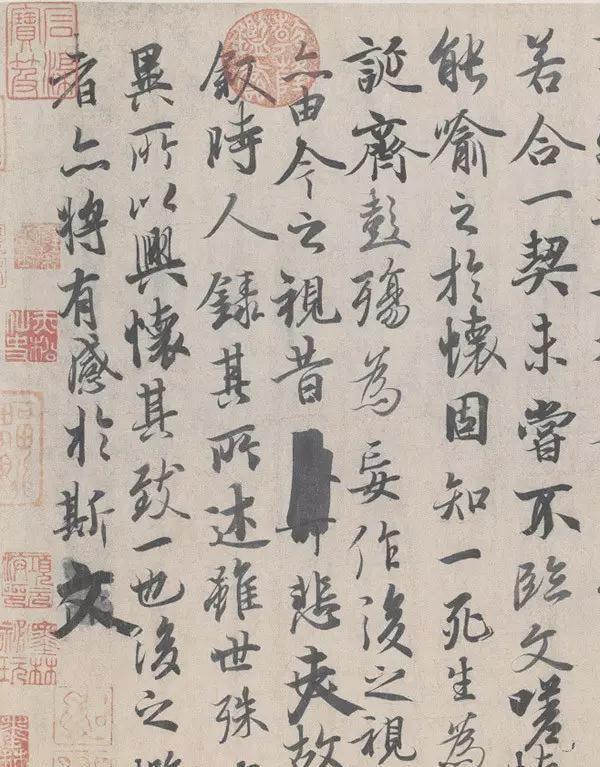 若合一契未嘗不臨文嗟
能喻之於懷固知一死生為
誕齊彭殤為妄作後之視
亦由今之視昔悲夫故
敘時人錄其所述雖世殊
異所以興懷其致一也後之
者亦將有感於斯文
石渠寶笈
赤松仙史